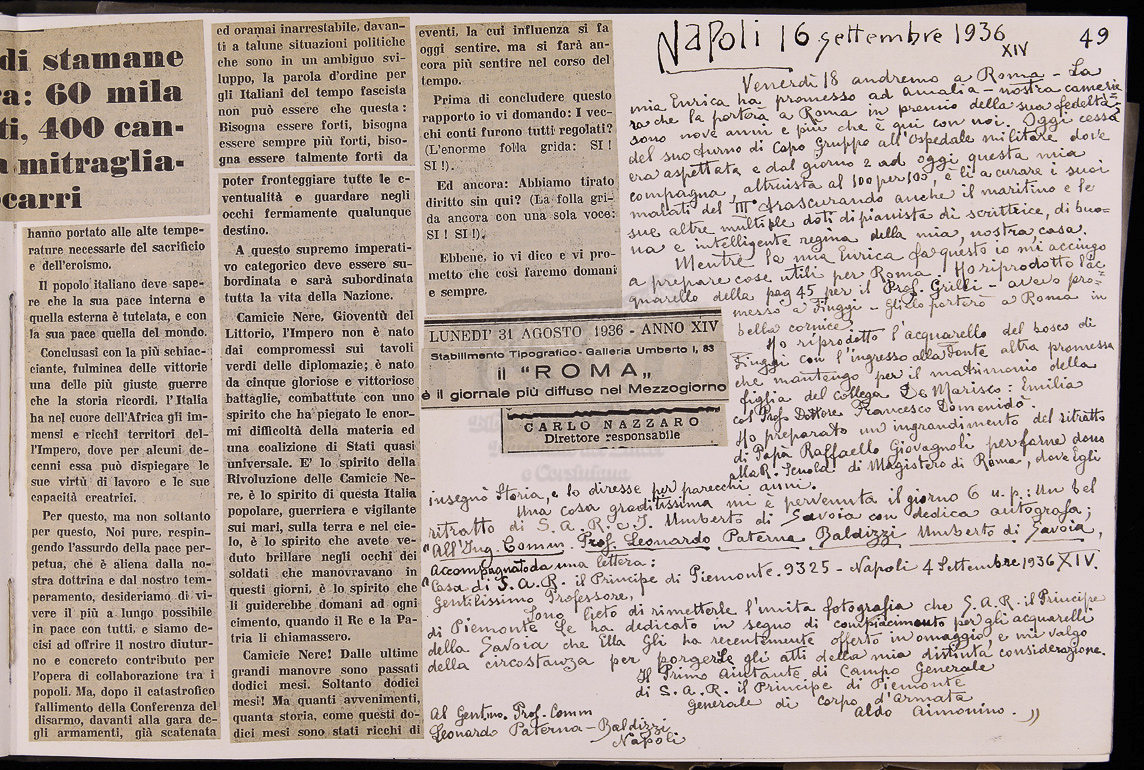 di stamane
ra: 60 mila
ti, 400 can-
mitraglia-
carri
hanno portato alle alte tempe-
rature necessarie del sacrificio
e dell'eroismo.
Il popolo italiano deve sape-
re che la sua pace interna e
quella esterna è tutelata, e con
la sua pace quella del mondo.
Conclusasi con la più schiac-
ciante, fulminea delle vittorie
una delle più giuste guerre
che la storia ricordi, l'Italia
ha nel cuore dell'Africa gli im-
mensi e ricchi territori del-
l'Impero, dove per alcuni de-
cenni essa può dispiegare le
sue virtù di lavoro e le sue
capacità creatrici.
Per questo, ma non soltanto
per questo, Noi pure, respin-
gendo l'assurdo della pace per-
petua, che è aliena dalla no-
stra dottrina e dal nostro tem-
peramento, desideriamo di vi-
vere il più a lungo possibile
in pace con tutti, e siamo de-
cisi ad offrire il nostro diutur-
no e concreto contributo per
l'opera di collaborazione tra i
popoli. Ma, dopo il catastrofico
fallimento della Conferenza del
disarmo, davanti alla gara de-
gli armamenti, già scatenata
ed oramai inarrestabile, davan-
ti a talune situazioni politiche
che sono in un ambiguo svi-
luppo, la parola d'ordine per
gli Italiani del tempo fascista
non può essere che questa:
Bisogna essere forti, bisogna
essere sempre più forti, biso-
gna essere talmente forti da
poter fronteggiare tutte le e-
ventualità e guardare negli
occhi fermamente qualunque
destino.
A questo supremo imperati-
vo categorico deve essere su-
bordinata e sarà subordinata
tutta la vita della Nazione.
Camicie Nere, Gioventù del
Littorio, l'Impero non è nato
dai compromessi sui tavoli
verdi delle diplomazie; è nato
da cinque gloriose e vittoriose
battaglie, combattute con uno
spirito che ha piegato le enor-
mi difficoltà della materia ed
una coalizione di Stati quasi
universale. E' lo spirito della
Rivoluzione delle Camicie Ne-
re, è lo spirito di questa Italia
popolare, guerriera e vigilante
sui mari, sulla terra e nel cie-
lo, è lo spirito che avete ve-
duto brillare negli occhi dei
soldati che manovravano in
questi giorni, è lo spirito che
li guiderebbe domani ad ogni
cimento, quando il Re e la Pa-
tria li chiamassero.
Camicie Nere! Dalle ultime
grandi manovre sono passati
dodici mesi. Soltanto dodici
mesi! Ma quanti avvenimenti,
quanta storia, come questi do-
dici mesi sono stati ricchi di
eventi, la cui influenza si fa
oggi sentire, ma si farà an-
cora più sentire nel corso del
tempo.
Prima di concludere questo
rapporto io vi domando: I vec-
chi conti furono tutti regolati?
(L'enorme folla grida: SI!
SI!).
Ed ancora: Abbiamo tirato
diritto sin qui? (La folla gri-
da ancora con una sola voce:
SI! SI!).
Ebbene, io vi dico e vi pro-
metto che così faremo domani
e sempre.
LUNEDI' 31 AGOSTO 1936 - ANNO XIV
Stabilimento Tipografico - Galleria Umberto I, 83
il "ROMA„
è il giornale più diffuso nel Mezzogiorno
CARLO NAZZARO
Direttore responsabile
Napoli 16 settembre 1936 XIV
49
Venerdì 18 andremo a Roma - La
mia Enrica ha promesso ad Amalia - nostra camerie
ra che la porterà a Roma in premio della sua fedeltà =
sono nove anni e più che è qui con noi. Oggi cessa
del suo turno di Capo Gruppo all'Ospedale militare dove
era aspettata e dal giorno 2 ad oggi questa mia
compagna, altruista al 100 per 100, è lì a curare i suoi
malati del III° trascurando anche il maritino e le
sue altre multiple doti di pianista di scrittrice, di buo=
na e intelligente regina della mia, nostra casa.
Mentre la mia Enrica fa questo io mi accingo
a prepare cose utili per Roma. Ho riprodotto l'ac=
quarello della pag 45 per il Prof. Grilli - avevo pro=
messo a Fiuggi - glielo porterò a Roma in
bella cornice.
Ho riprodotto l'acquarello del bosco di
Fiuggi con l'ingresso alla Fonte altra promessa
che mantengo per il matrimonio della
figlia del collega De Marisco: Emilia
col Prof. Dottore Francesco Domenidò.
Ho preparato un ingrandimento del ritratto
di Papà Raffaello Giovagnoli per farne dono
alla R. Scuola di Magistero di Roma, dove egli
insegnò Storia, e lo diresse per parecchi anni.
Una cosa graditissima mi è pervenuta il giorno 6 u.p.: Un bel
ritratto di S.A.R. e I. Umberto di Savoia con dedica autografa;
"All'Ing. Comm. Prof. Leonardo Paterna Baldizzi Umberto di Savoia,
accompagnato da una lettera:
"Casa di S.A.R. il Principe di Piemonte. 9325 - Napoli 4 Settembre 1936 XIV.
Gentilissimo Professore,
Sono lieto di rimetterle l'unita fotografia che S.A.R. il Principe
di Piemonte Le ha dedicato in segno di compiacimento per gli acquarelli
della Savoia che Ella Gli ha recentemente offerto in omaggio e mi valgo
della circostanza per porgerLe gli atti della mia distinta considerazione.
Il Primo Aiutante di Campo Generale
di S.A.R. il Principe di Piemonte
Generale di corpo d'Armata
Aldo Aimonino. „
Al Gentmo. Prof. Comm
Leonardo Paterna-Baldizzi
Napoli